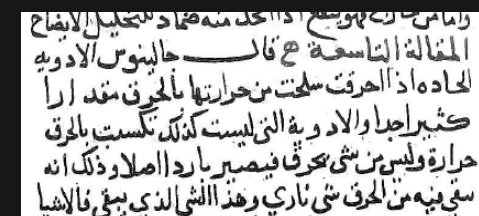 واما من خارج فهو ينفع اذا اتخذ منه ضماد لتحليل الاىضاج
المقالة التاسعة ج قال جالينوس الادويه
الحاده اذا احرقت سلخت من حرارتها بالحرق مقدارا
كثيرا جدا والادوية التى ليست كذلك تكسب بالحرق
حرارة وليس من شى يحرق فيصير باردا اصلا وذلك انه
سقى فيه من الحرق شى نارى وهذا الشى الذى يبقى فالاشيا